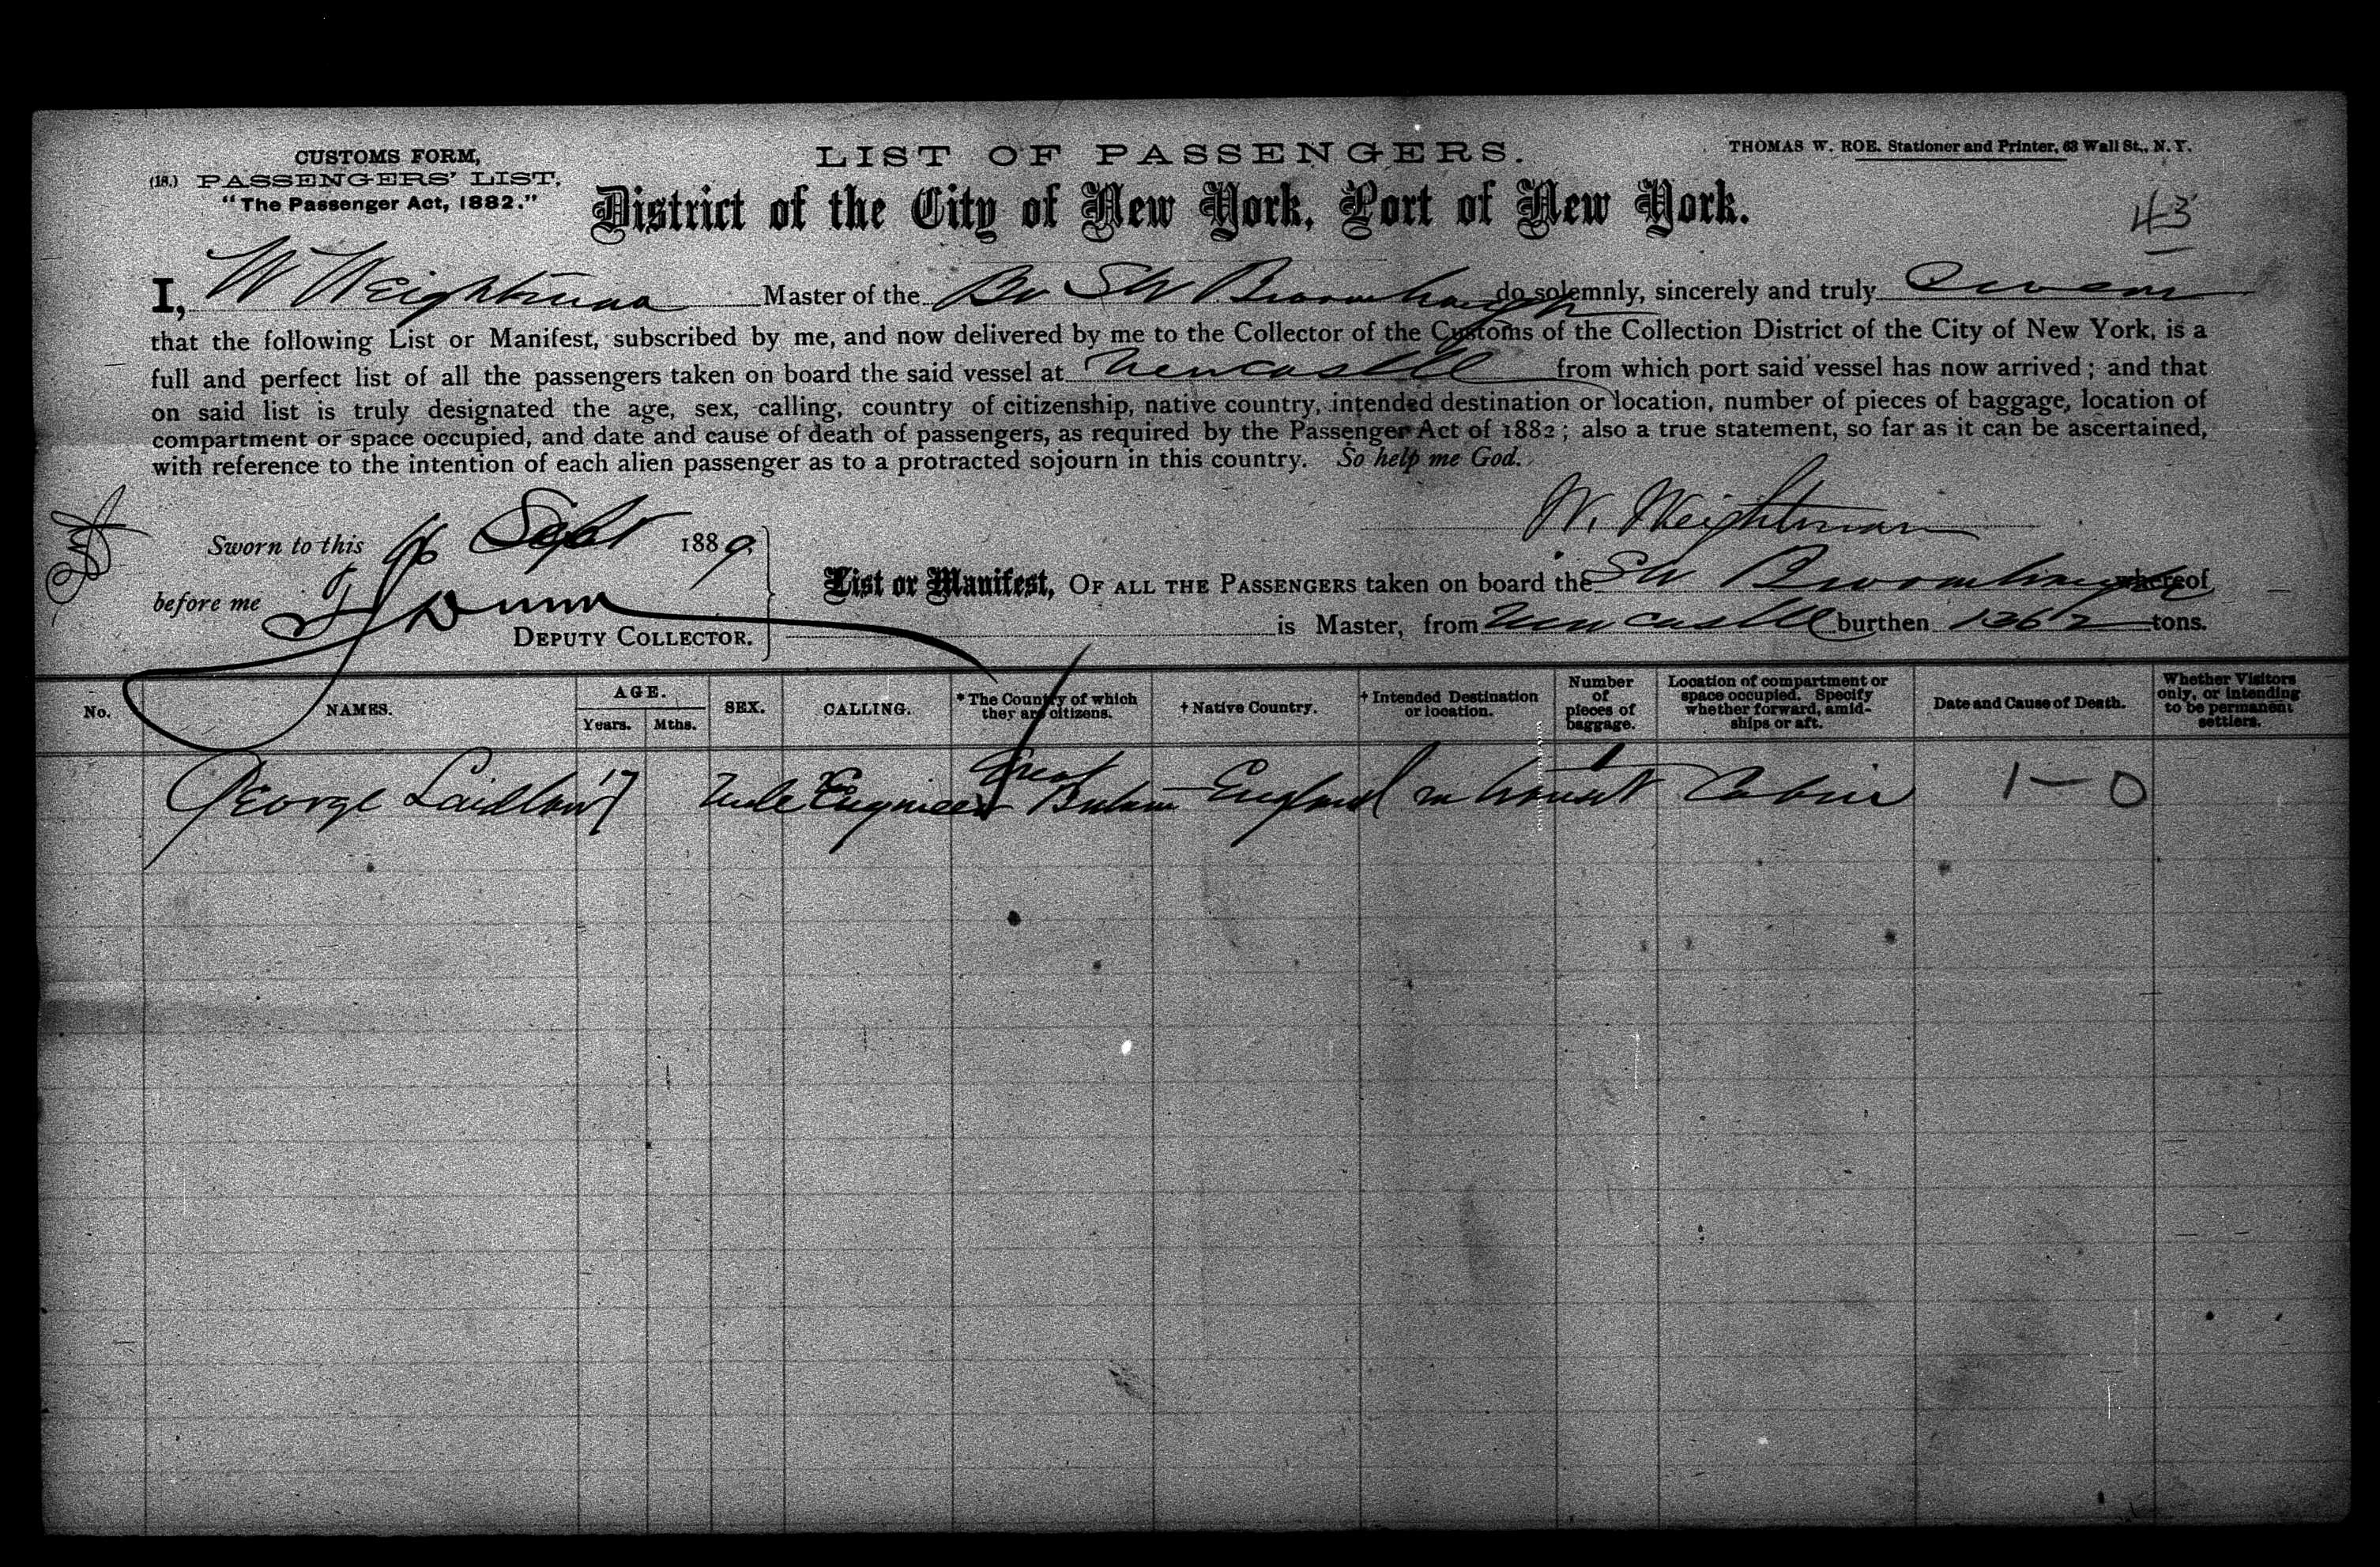 CUSTOMS FORM,
(18.) PASSENGERS' LIST,
"The Passenger Act, 1882."
LIST OF PASSENGERS.
THOMAS W. ROE. Stationer and Printer, 63 Wall St., N. Y.
District of the City of New York, Port of New York.
43
I, W Weightman Master of the Br SW Broomhaugh do solemnly, sincerely and truly Swear
that the following List or Manifest, subscribed by me, and now delivered by me to the Collector of the Customs of the Collection District of the City of New York, is a
full and perfect list of all the passengers taken on board the said vessel at Newcastle from which port said vessel has now arrived; and that
on said list is truly designated the age, sex, calling, country of citizenship, native country, intended destination or location, number of pieces of baggage, location of
compartment or space occupied, and date and cause of death of passengers, as required by the Passenger Act of 1882; also a true statement, so far as it can be ascertained,
with reference to the intention of each alien passenger as to a protracted sojourn in this country. So help me God.
W. Weightman
Sworn to this Sept 1889.
before me Dunn
DEPUTY COLLECTOR.
List or Manifest, OF ALL THE PASSENGERS taken on board the SW Broomhaugh whereof
is Master, from Newcastle burthen 1362 tons.
No. NAMES. AGE. Years. Mths. SEX. CALLING. * The Country of which they are citizens. † Native Country. † Intended Destination or location. Number of pieces of baggage. Location of compartment or space occupied. Specify whether forward, amidships or aft. Date and Cause of Death. Whether Visitors only, or intending to be permanent settlers.
George Laidlaw 17 Male Engineer Great Britain England in transit Cabin 1-0